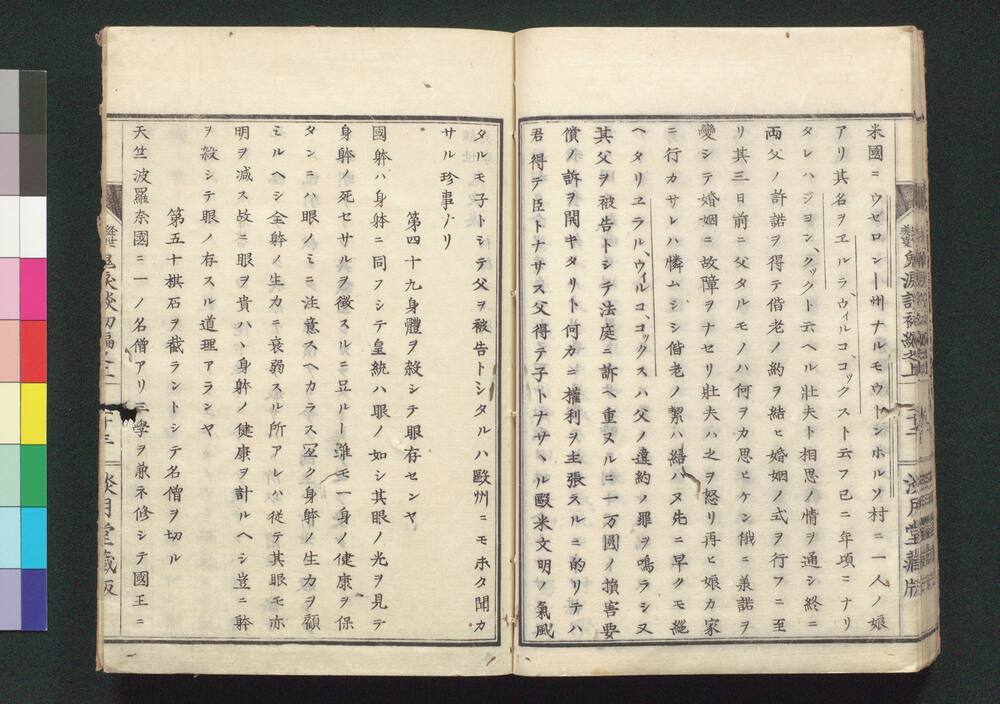 米國ニウゼロン一州ナルモウトンホルソ村ニ一人ノ娘
アリ其名ヲヱルラ、ウィルコ、コックスト云フ已ニ年頃ニナリ
タレハジヨン、クックト云ヘル壯夫ト相思ノ情ヲ通シ終ニ
両父ノ許諾ヲ得テ偕老ノ約ヲ結ヒ婚姻ノ式ヲ行フニ至
リ其三日前ニ父タルモノハ何ヲカ思ヒケン俄ニ兼諾ヲ
變シテ婚姻ニ故障ヲナセリ壯夫ハ之ヲ怒リ再ヒ娘カ家
ニ行カサレハ憐ムシシ偕老ノ絜ハ繕ハヌ先ニ早クモ縄
ヘタリヱラル、ウイルコ、コックスハ父ノ違約ノ罪ヲ鳴ラシ又
其父ヲ被告トシテ法庭ニ訴ヘ重ヌルニ一万圓ノ損害要
償ノ訴ヲ開キタリト何カニ權利ヲ主張スルニ的リテハ
君得テ臣トナサス父得テ子トナサヽル歐米文明ノ氣風
タルモ子トシテ父ヲ被告トシタルハ歐州ニモホタ聞カ
サル珍事ナリ
第四十九身體ヲ殺シテ眼存センヤ
國躰ハ身躰ニ同フシテ皇統ハ眼ノ如シ其眼ノ光ヲ見テ
身躰ノ死セサルヲ徴スルニ足ルー雖モ一身ノ健康ヲ保
タンニハ眼ノミニ注意スヘカラス冝ク身躰ノ生力ヲ顧
ミルヘシ全躰ノ生カニ衰弱スル所アレハ従テ其眼モ亦
明ヲ减ス故ニ眼ヲ貴ハヽ身躰ノ健康ヲ計ルヘシ豈ニ躰
ヲ殺シテ眼ノ存スル道理アランヤ
第五十棋石ヲ截ラントシテ名僧ヲ切ル
天竺波羅奈國ニ一ノ名僧アリ三學ヲ兼ネ修シテ國王ニ